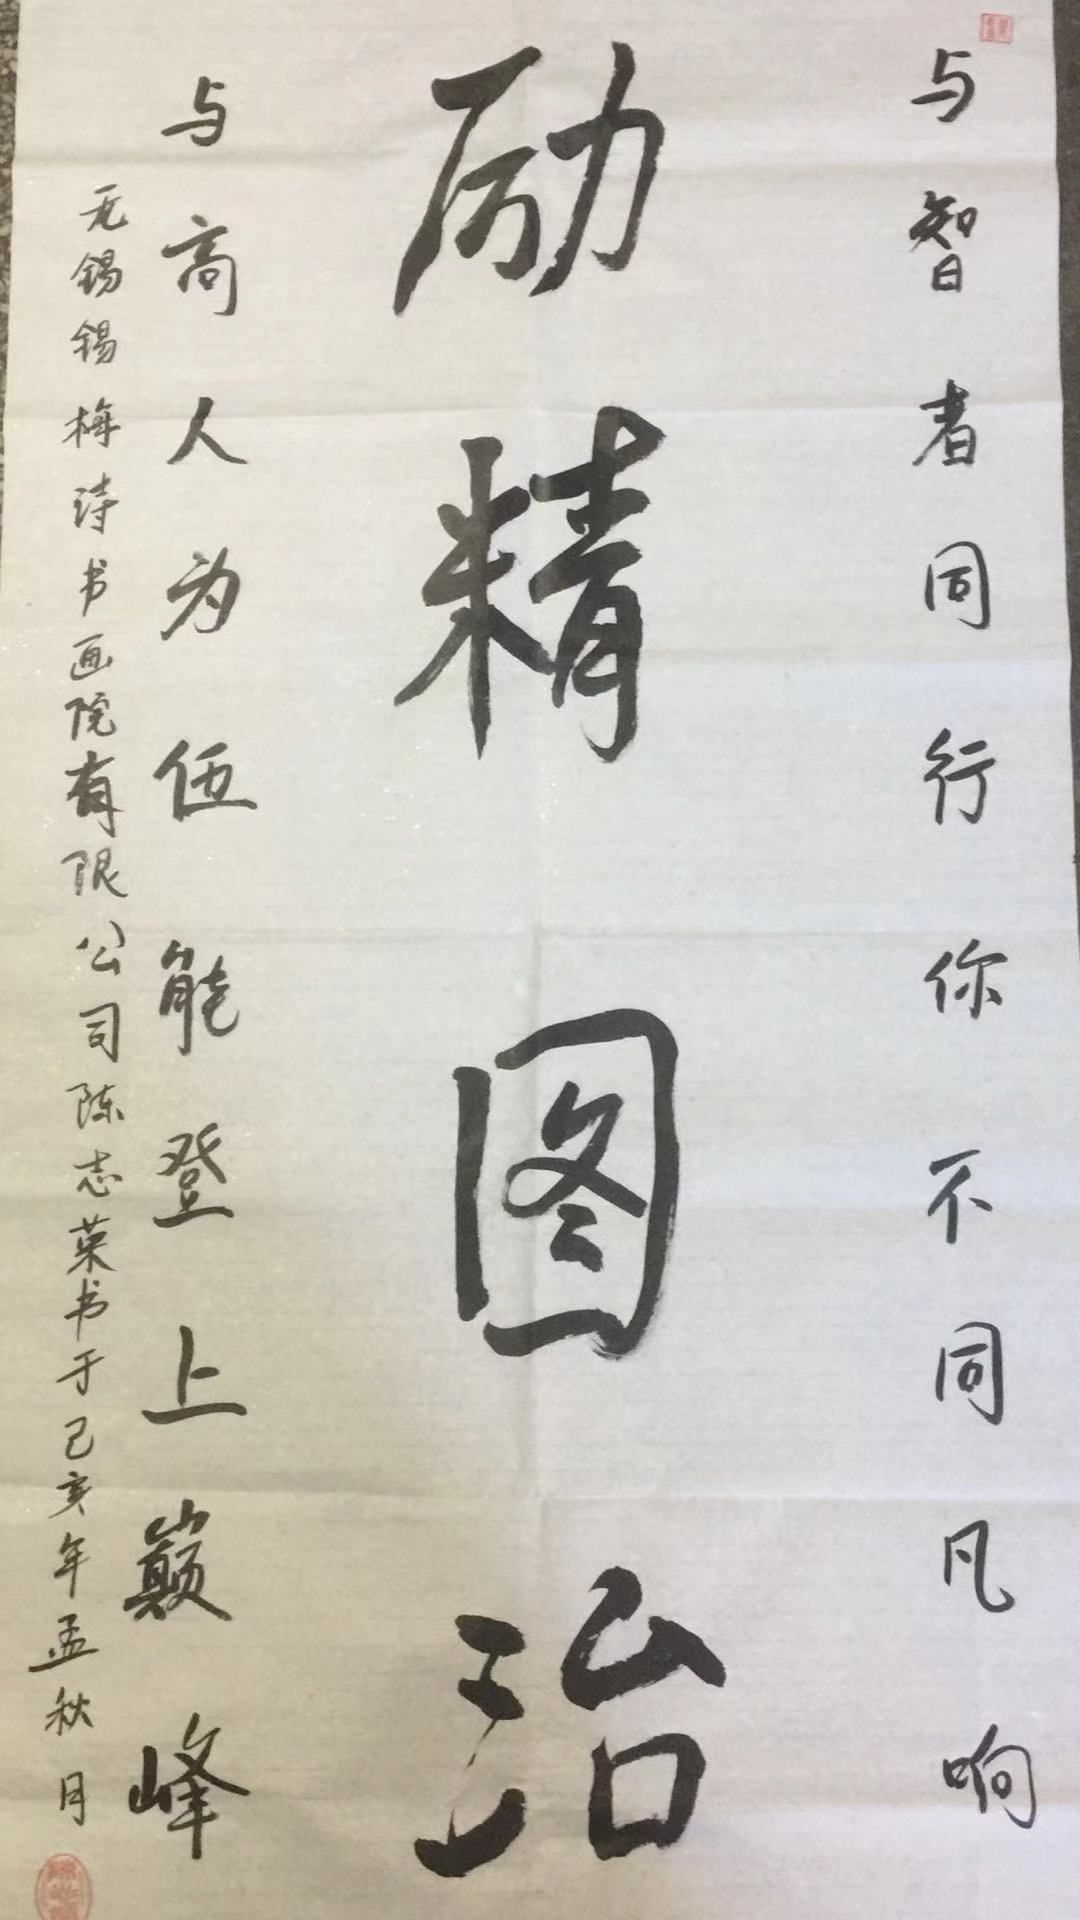 与智者同行你不同凡响
励精图治
与高人为伍能登上巅峰
无锡锡梅诗书画院有限公司陈志荣书于己亥年孟秋月